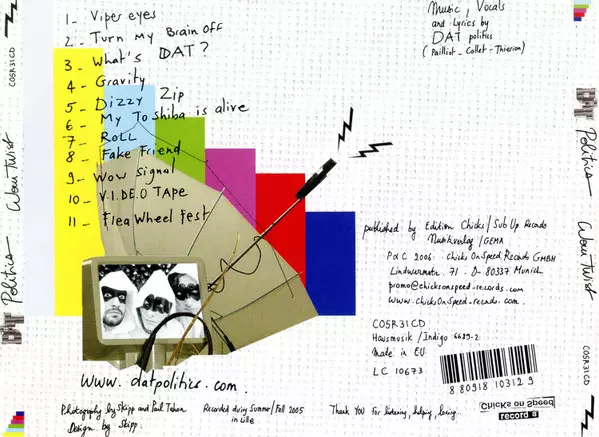 1_ Viper eyes
2_ Turn My Brain OFF
3_ What's DAT?
4_ Gravity
5_ Dizzy Zip
6_ My Toshiba is alive
7_ ROLL
8_ Fake Friend
9_ Wow signal
10_ V.I.DE.O TAPE
11_ Flea Wheel Fest
Music, Vocals
and Lyrics by
DAT politics
(Pailliot_ Collet_ Thierion)
published by Edition Chicks / Sub Up Records
Musikverlag / GEMA
P&C 2006 Chicks On Speed Records GMBH
Lindwurmstr. 71. D- 80337 Munich
promo@chicksonspeed-records.com
www.ChicksOnSpeed-records.com
COSR31CD
Hausmusik / Indigo 6689-2
Made in EU
LC 10673
8 80918 10312 9
Chicks on Speed
records
www.datpolitics.com
Photography by Skipp and Paul
Design by Skipp.
Recorded during Summer/Fall 2005
in Lille
Thank You For listening, helping, loving...
COSR31CD
DAT Politics
Wow Twist
DAT Politics
Wow Twist
COSR31CD